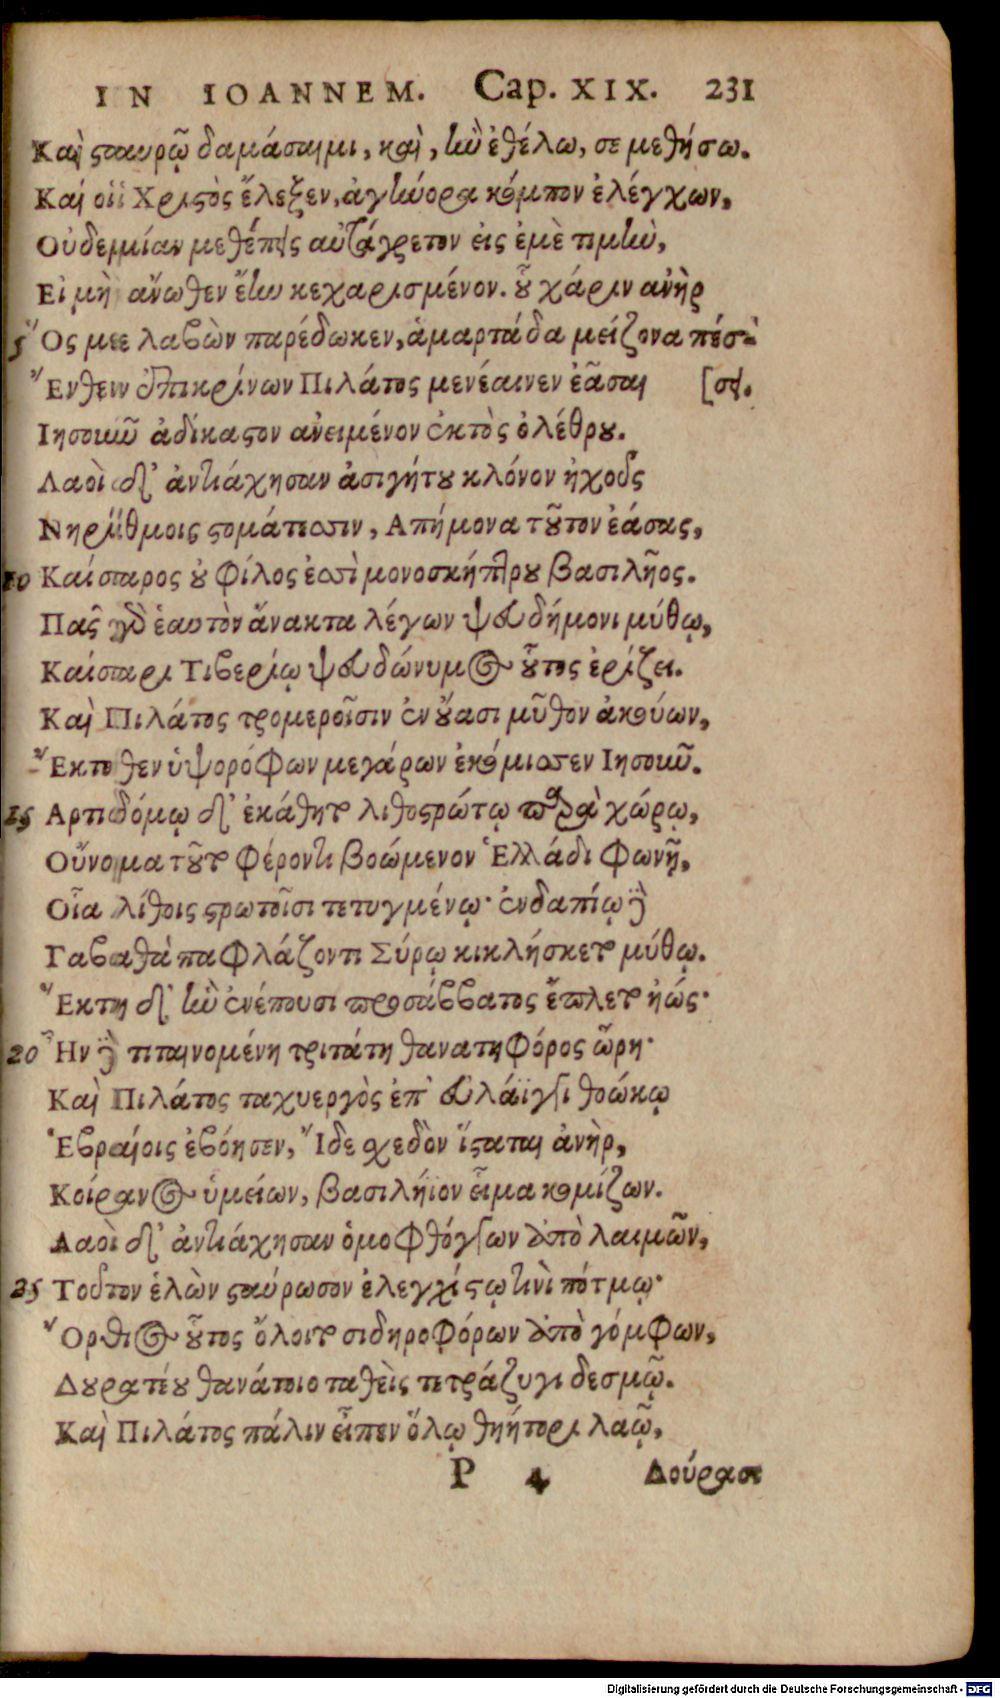 IN IOANNEM. Cap. XIX. 231
Καὶ σταυρῷ δαμάσαιμι, καὶ, ἢν ἐθέλω, σε μεθήσω.
Καί οἱ Χριστὸς ἔλεξεν, ἀγήνορα κόμπον ἐλέγχων,
Οὐδεμίαν μεθέπεις αὐτάγρετον εἰς ἐμὲ τιμὴν,
Εἰ μὴ ἄνωθεν ἔην κεχαρισμένον. οὗ χάριν ἀνὴρ
5 Ὅς μεε λαβὼν παρέδωκεν, ἁμαρτάδα μείζονα πέσ-
Ἔνθεν ἐπικρίνων Πιλάτος μενέαινεν ἐᾶσαι [σει.
Ἰησοῦν ἀδίκαστον ἀνειμένον ἐκτὸς ὀλέθρου.
Λαοὶ δ' ἀντιάχησαν ἀσιγήτου κλόνον ἠχοῦς
Νηρίθμοις στομάτεσσιν, Ἀπήμονα τοῦτον ἐάσας,
10 Καίσαρος οὐ φίλος ἐσσὶ μονοσκήπτρου βασιλῆος.
Πᾶς γὸ ἑαυτὸν ἄνακτα λέγων ψευδήμονι μύθῳ,
Καίσαρι Τιβερίῳ ψευδώνυμος οὗτος ἐρίζει.
Καὶ Πιλάτος τρομεροῖσιν ἐν οὔασι μῦθον ἀκούων,
Ἔκτοθεν ὑψορόφων μεγάρων ἐκόμισσεν Ἰησοῦν.
15 Ἀρτιδόμῳ δ' ἐκάθητο λιθοστρώτῳ παρὰ χώρῳ,
Οὔνομα τοῦτο φέροντι βοώμενον Ἑλλάδι φωνῇ,
Οἷα λίθοις στρωτοῖσι τετυγμένῳ· ἐνδαπίῳ δὲ
Γαβαθὰ παφλάζοντι Σύρῳ κικλήσκετο μύθῳ.
Ἕκτη δ' ἣν ἐνέπουσι προσάββατος ἔπλετο ἠώς·
20 Ἦν δὲ τιταινομένη τριτάτη θανατηφόρος ὥρη·
Καὶ Πιλάτος ταχυεργὸς ἐπ' εὐλάϊγγι θοώκῳ
Ἑβραίοις ἐβόησεν, Ἴδε σχεδὸν ἵσταται ἀνὴρ,
Κοίρανος ὑμείων, βασιλήϊον εἷμα κομίζων.
Λαοὶ δ' ἀντιάχησαν ὁμοφθόγγων ἀπὸ λαιμῶν,
25 Τοῦτον ἑλὼν σταύρωσον ἐλεγχίστῳ τινὶ πότμῳ·
Ὄρθιος οὗτος ὄλοιτο σιδηροφόρων ἀπὸ γόμφων,
Δουρατέου θανάτοιο ταθεὶς τετράζυγι δεσμῷ.
Καὶ Πιλάτος πάλιν εἶπεν ὅλῳ θηήτορι λαῷ,
P 4 Δούρασι
Digitalisierung gefördert durch die Deutsche Forschungsgemeinschaft - DFG